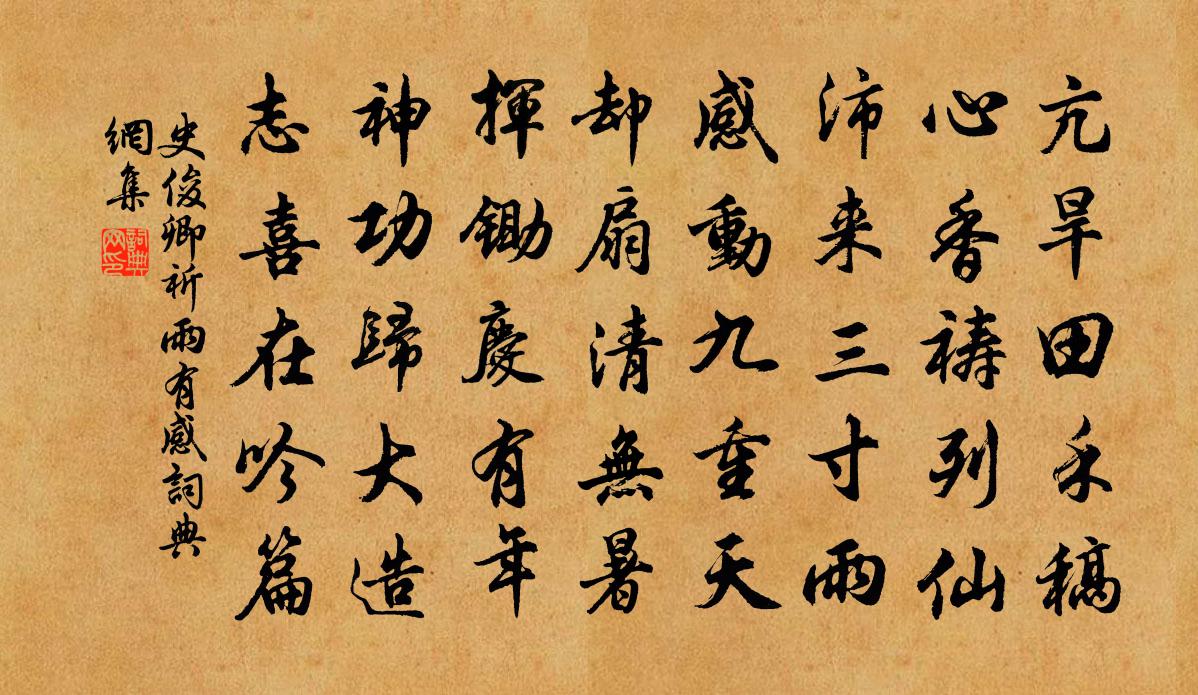 亢旱田禾稿
心香禱列仙
沛来三寸雨
感動九重天
却扇清無暑
揮鋤慶有年
神功歸大造
志喜在吟篇
史俊卿祈雨有感詞典
網集
詞典網印